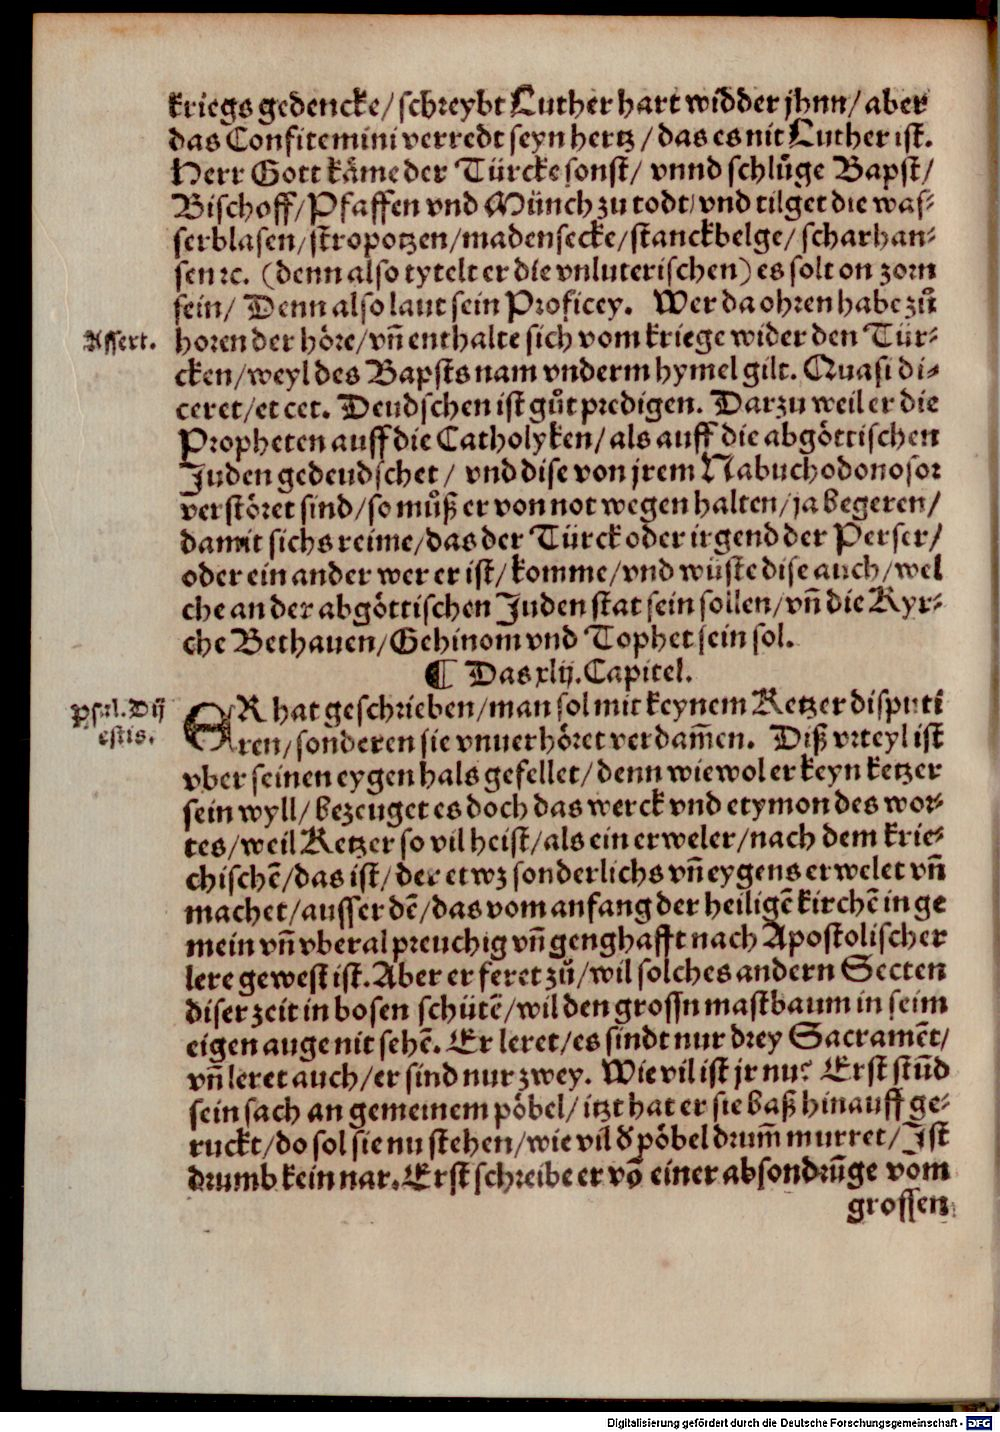 kriegs gedencke/ schreybt Luther hart widder jhnn/ aber
das Confitemini verredt seyn hertz/ das es nit Luther ist.
Herr Gott käme der Türcke sonst/ vnnd schlůge Bapst/
Bischoff/ Pfaffen vnd Münch zu todt/ vnd tilget die was-
serblasen/ stropotzen/ madensecke/ stanckbelge/ scharhan-
sen ꝛc. (denn also tytelt er die vnluterischen) es solt on zorn
sein/ Denn also laut sein Proficey. Wer da ohren habe zů
Assert.
horen der höre/ vñ enthalte sich vom kriege wider den Tür-
cken/ weyl des Bapsts nam vnderm hymel gilt. Quasi di-
ceret/ et cet. Deudschen ist gůt predigen. Darzu weil er die
Propheten auff die Catholyken/ als auff die abgöttischen
Juden gedeudschet/ vnd dise von jrem Nabuchodonosor
verstöret sind/ so můß er von not wegen halten/ ja begeren/
damit sichs reime/ das der Türck oder irgend der Perser/
oder ein ander wer er ist/ komme/ vnd wüste dise auch/ wel
che an der abgöttischen Juden stat sein sollen/ vñ die Kyr-
che Bethauen/ Gehinom vnd Tophet sein sol.
¶ Das xlij. Capitel.
Psal. Dij
estis.
ER hat geschrieben/ man sol mit keynem Ketzer disputi
ren/ sonderen sie vnuerhöret verdam̄en. Diß vrteyl ist
vber seinen eygen hals gefellet/ denn wiewol er keyn ketzer
sein wyll/ bezeuget es doch das werck vnd etymon des wor-
tes/ weil Ketzer so vil heist/ als ein erweler/ nach dem krie-
chischẽ/ das ist/ der etwz sonderlichs vñ eygens erwelet vñ
machet/ ausser dẽ/ das vom anfang der heiligẽ kirchẽ in ge
mein vñ vberal preuchig vñ genghafft nach Apostolischer
lere gewest ist. Aber er feret zů/ wil solches andern Secten
diser zeit in bosen schütẽ/ wil den grossn mastbaum in seim
eigen auge nit sehẽ. Er leret/ es sindt nur drey Sacramẽt/
vñ leret auch/ er sind nur zwey. Wie vil ist jr nu? Erst stũd
sein sach an gemeinem pöbel/ itzt hat er sie baß hinauff ge-
ruckt/ do sol sie nu stehen/ wie vil d̕ pöbel drum̄ murret/ Ist
drumb kein nar. Erst schreibe er võ einer absondrũge vom
grossen
Digitalisierung gefördert durch die Deutsche Forschungsgemeinschaft - DFG